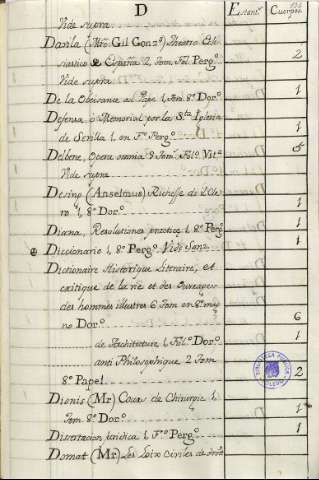 D Estant.ˢ Cuerpos
Vide supra
Davila (Mro. Gil Gonz.ˢ) Theatro Ecle
siastico de España 2 Tom. Fol. Perg.º 2
Vide supra
De la Obeisance al Pape 1 Tom. 8.º Dor.º 1
Defensa, ò Memorial por la S.ta Iglesia
de Sevilla 1, en F.º Perg.º 1
Opera omnia 9 Tom. Fol.º
Vide supra
(Anselmus) Richesse de l'Cle
ro 1, 8.º Dor.º 1
Diana, Resolutiones practicæ 1, 8.º Perg.º 1
Diccionario 1, 8.º Perg.º Vide 1
Dictionaire Historique Literaire, et
critique de la vie et des Ouvrages
des hommes illustres 6 Tom en 8.º
no Dor.º 6
de Architectura 1, Fol.º Dor.º 1
anti Philosophique 2 Tom
8.º Papel 2
Dionis (Mr) Cours de Chirurgie 1,
Tom. 8.º Dor.º 1
Dissertacion Juridica 1, F.º Perg.º 1
Domat (Mr) Les Loix Civiles